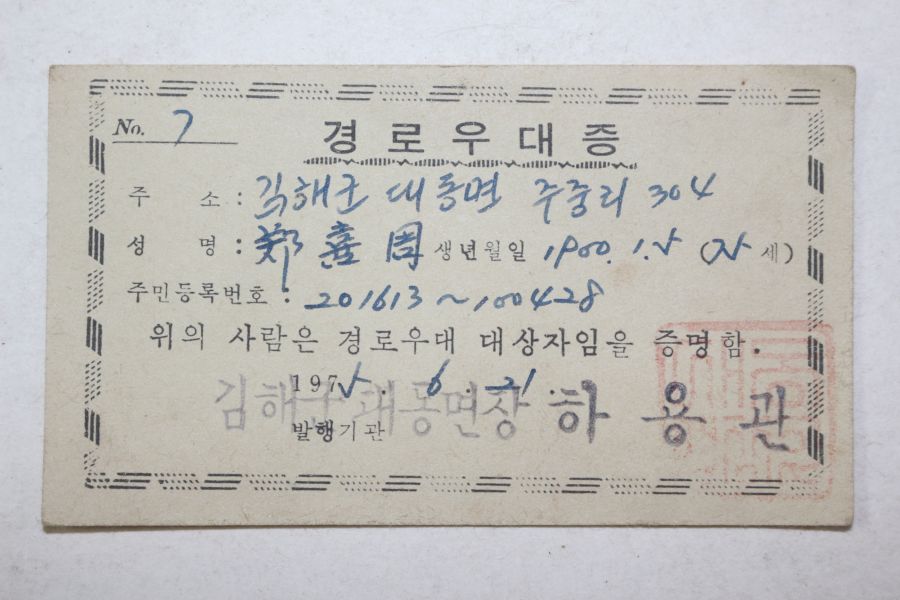 No. 7
경로우대증
주 소 : 김해군 대동면 주중리 304
성 명 : 鄭 憙 周 생년월일 1900. 1. 5 (75 세)
주민등록번호 : 201613~100428
위의 사람은 경로우대 대상자임을 증명함.
1975. 6. 21.
발행기관 김해군대동면장 하용관